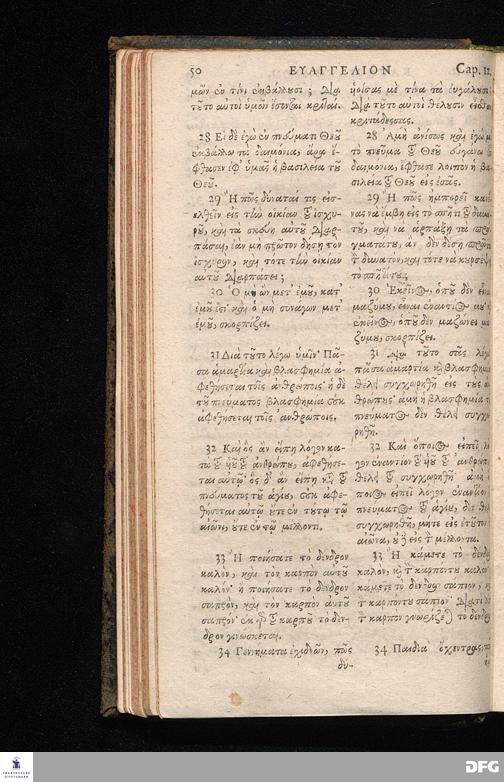 50 ΕΥΑΓΓΕΛΙΟΝ Cap. 12.
μῶν ἐν τίνι ἐκβάλλουσι; Διὰ
τοῦτο αὐτοὶ ὑμῶν ἔσονται κριταί.
28 Εἰ δὲ ἐγὼ ἐν πνεύματι Θεοῦ
ἐκβάλλω τὰ δαιμόνια, ἄρα ἔ-
φθασεν ἐφ᾽ ὑμᾶς ἡ βασιλεία τοῦ
Θεοῦ.
29 Ἢ πῶς δύναταί τις εἰσ-
ελθεῖν εἰς τὴν οἰκίαν τοῦ ἰσχυ-
ροῦ, καὶ τὰ σκεύη αὐτοῦ διαρ-
πάσαι, ἐὰν μὴ πρῶτον δήσῃ τὸν
ἰσχυρὸν, καὶ τότε τὴν οἰκίαν
αὐτοῦ διαρπάσει;
30 Ὁ μὴ ὢν μετ᾽ ἐμοῦ, κατ᾽
ἐμοῦ ἐστί· καὶ ὁ μὴ συνάγων μετ᾽
ἐμοῦ, σκορπίζει.
31 Διὰ τοῦτο λέγω ὑμῖν· Πᾶ-
σα ἁμαρτία καὶ βλασφημία ἀ-
φεθήσεται τοῖς ἀνθρώποις· ἡ δὲ
τοῦ πνεύματος βλασφημία οὐκ
ἀφεθήσεται τοῖς ἀνθρώποις.
32 Καὶ ὃς ἂν εἴπῃ λόγον κα-
τὰ τοῦ υἱοῦ τοῦ ἀνθρώπου, ἀφεθήσε-
ται αὐτῷ· ὃς δ᾽ ἂν εἴπῃ κατὰ τοῦ
πνεύματος τοῦ ἁγίου, οὐκ ἀφε-
θήσεται αὐτῷ οὔτε ἐν τούτῳ τῷ
αἰῶνι, οὔτε ἐν τῷ μέλλοντι.
33 Ἢ ποιήσατε τὸ δένδρον
καλὸν, καὶ τὸν καρπὸν αὐτοῦ
καλόν· ἢ ποιήσατε τὸ δένδρον
σαπρὸν, καὶ τὸν καρπὸν αὐτοῦ
σαπρόν· ἐκ γὰρ τοῦ καρποῦ τὸ δέν-
δρον γινώσκεται.
34 Γεννήματα ἐχιδνῶν, πῶς
δύ-
ὑοί σας μὲ τίνα τὰ εὐγάλουσι;
Διὰ τοῦτο αὐτοὶ θέλουσιν
κριτάδες σας.
28 Ἀμὴ ἀνίσως καὶ ἐγὼ
τὸ πνεῦμα τοῦ Θεοῦ εὐγάνω
δαιμόνια, ἔφθασε λοιπὸν ἡ βα-
σιλεία τοῦ Θεοῦ εἰς ἐσᾶς.
29 Ἢ πῶς ἠμπορεῖ
νὰ ἔμβῃ εἰς τὸ σπῆτι τοῦ
καὶ νὰ ἁρπάξῃ τὰ
γματά του, ἂν δὲν δέσῃ
τὸν δυνατὸν, καὶ τότε νὰ
τὸ σπῆτί του;
30 Ἐκεῖνος, ὁποῦ δὲν εἶναι
μαζύ μου, εἶναι ἐναντίος μου·
ἐκεῖνος, ὁποῦ δὲν μαζώνει
ζύ μου, σκορπίζει.
31 Διὰ τοῦτο σᾶς λέγω
πᾶσα ἁμαρτία καὶ βλασφημία
θέλει συγχωρηθῆ εἰς τοὺς ἀν-
θρώπους· ἀμὴ ἡ βλασφημία
πνεύματος δὲν θέλει συγχω-
ρηθῆ.
32 Καὶ ὅποιος εἰπεῖ
γον ἐναντίον τοῦ υἱοῦ τοῦ ἀνθρώπου
θέλει τοῦ συγχωρηθῆ·
ποιος εἰπεῖ λόγον ἐναντίον
πνεύματος τοῦ ἁγίου, δὲν θέλει
συγχωρηθῆ, μήτε εἰς ἐτοῦτον
αἰῶνα, οὐδὲ εἰς τὸν μέλλοντα.
33 Ἢ κάμετε τὸ δένδρον
καλὸν, καὶ τὸν καρπόν του καλόν·
κάμετε τὸ δένδρον σάπιον, καὶ
τὸν καρπόν του σάπιον·
τὸν καρπὸν γνωρίζεται τὸ δένδρον.
34 Παιδία ὀχέντρας,